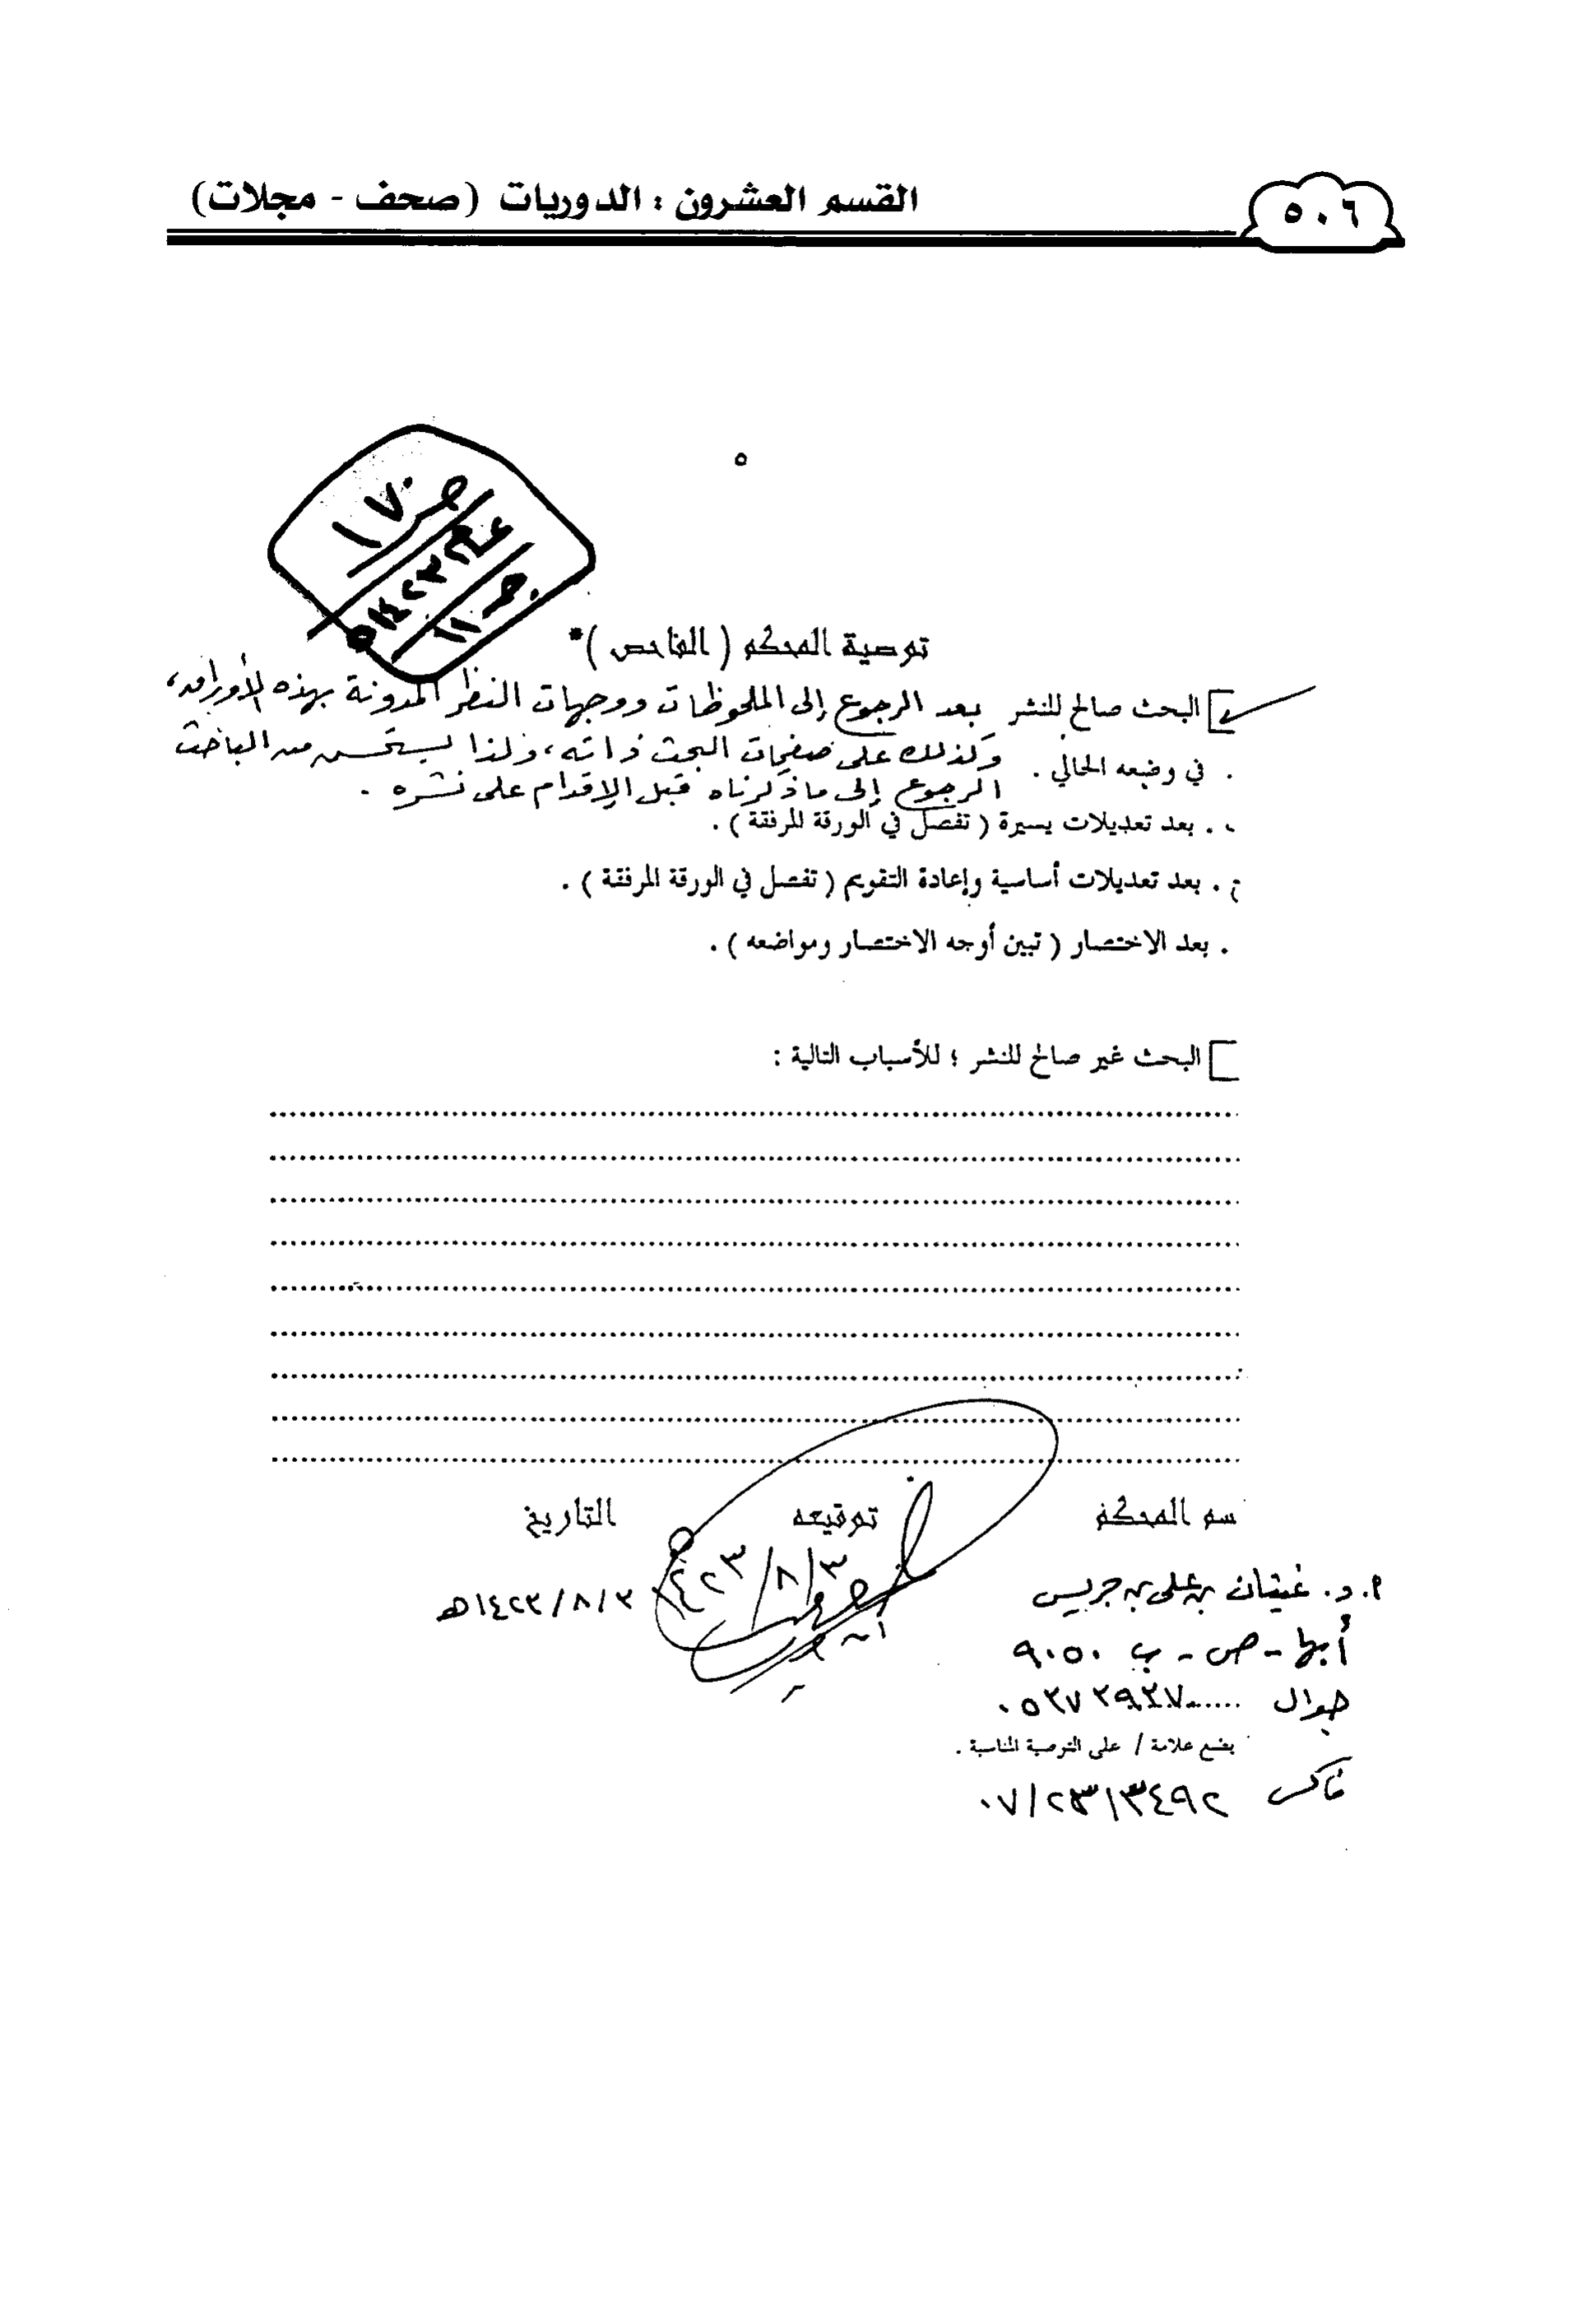 ٥٠٦
القسم العشرون : الدوريات (صحف - مجلات)
٥
توصية المحكم ( الفاحص )*
البحث صالح للنشر بعد الرجوع إلى الملحوظات ووجهات النظر المدونة بهذه الأوراق،
وكذلك على صفحات البحث ذاته، ولذا يستحسن من الباحث
. في وضعه الحالي .
الرجوع إلى ما ذكرناه قبل الإقدام على نشره .
. بعد تعديلات يسيرة ( تفصل في الورقة المرفقة ) .
. بعد تعديلات أساسية وإعادة التقويم ( تفصل في الورقة المرفقة ) .
. بعد الاختصار ( تبين أوجه الاختصار ومواضعه ) .
البحث غير صالح للنشر ؛ للأسباب التالية :
سم المحكم توقيعه التاريخ
أ.د. غيثان بن علي بن جريس ١٤٢٣/٨/٣ ١٤٢٣/٨/٣هـ
أبها - ص - ب ٩٠٥٠
جوال
يضع علامة / على التوصية المناسبة .
فاكس ٠٧/٢٣١٣٤٩٢